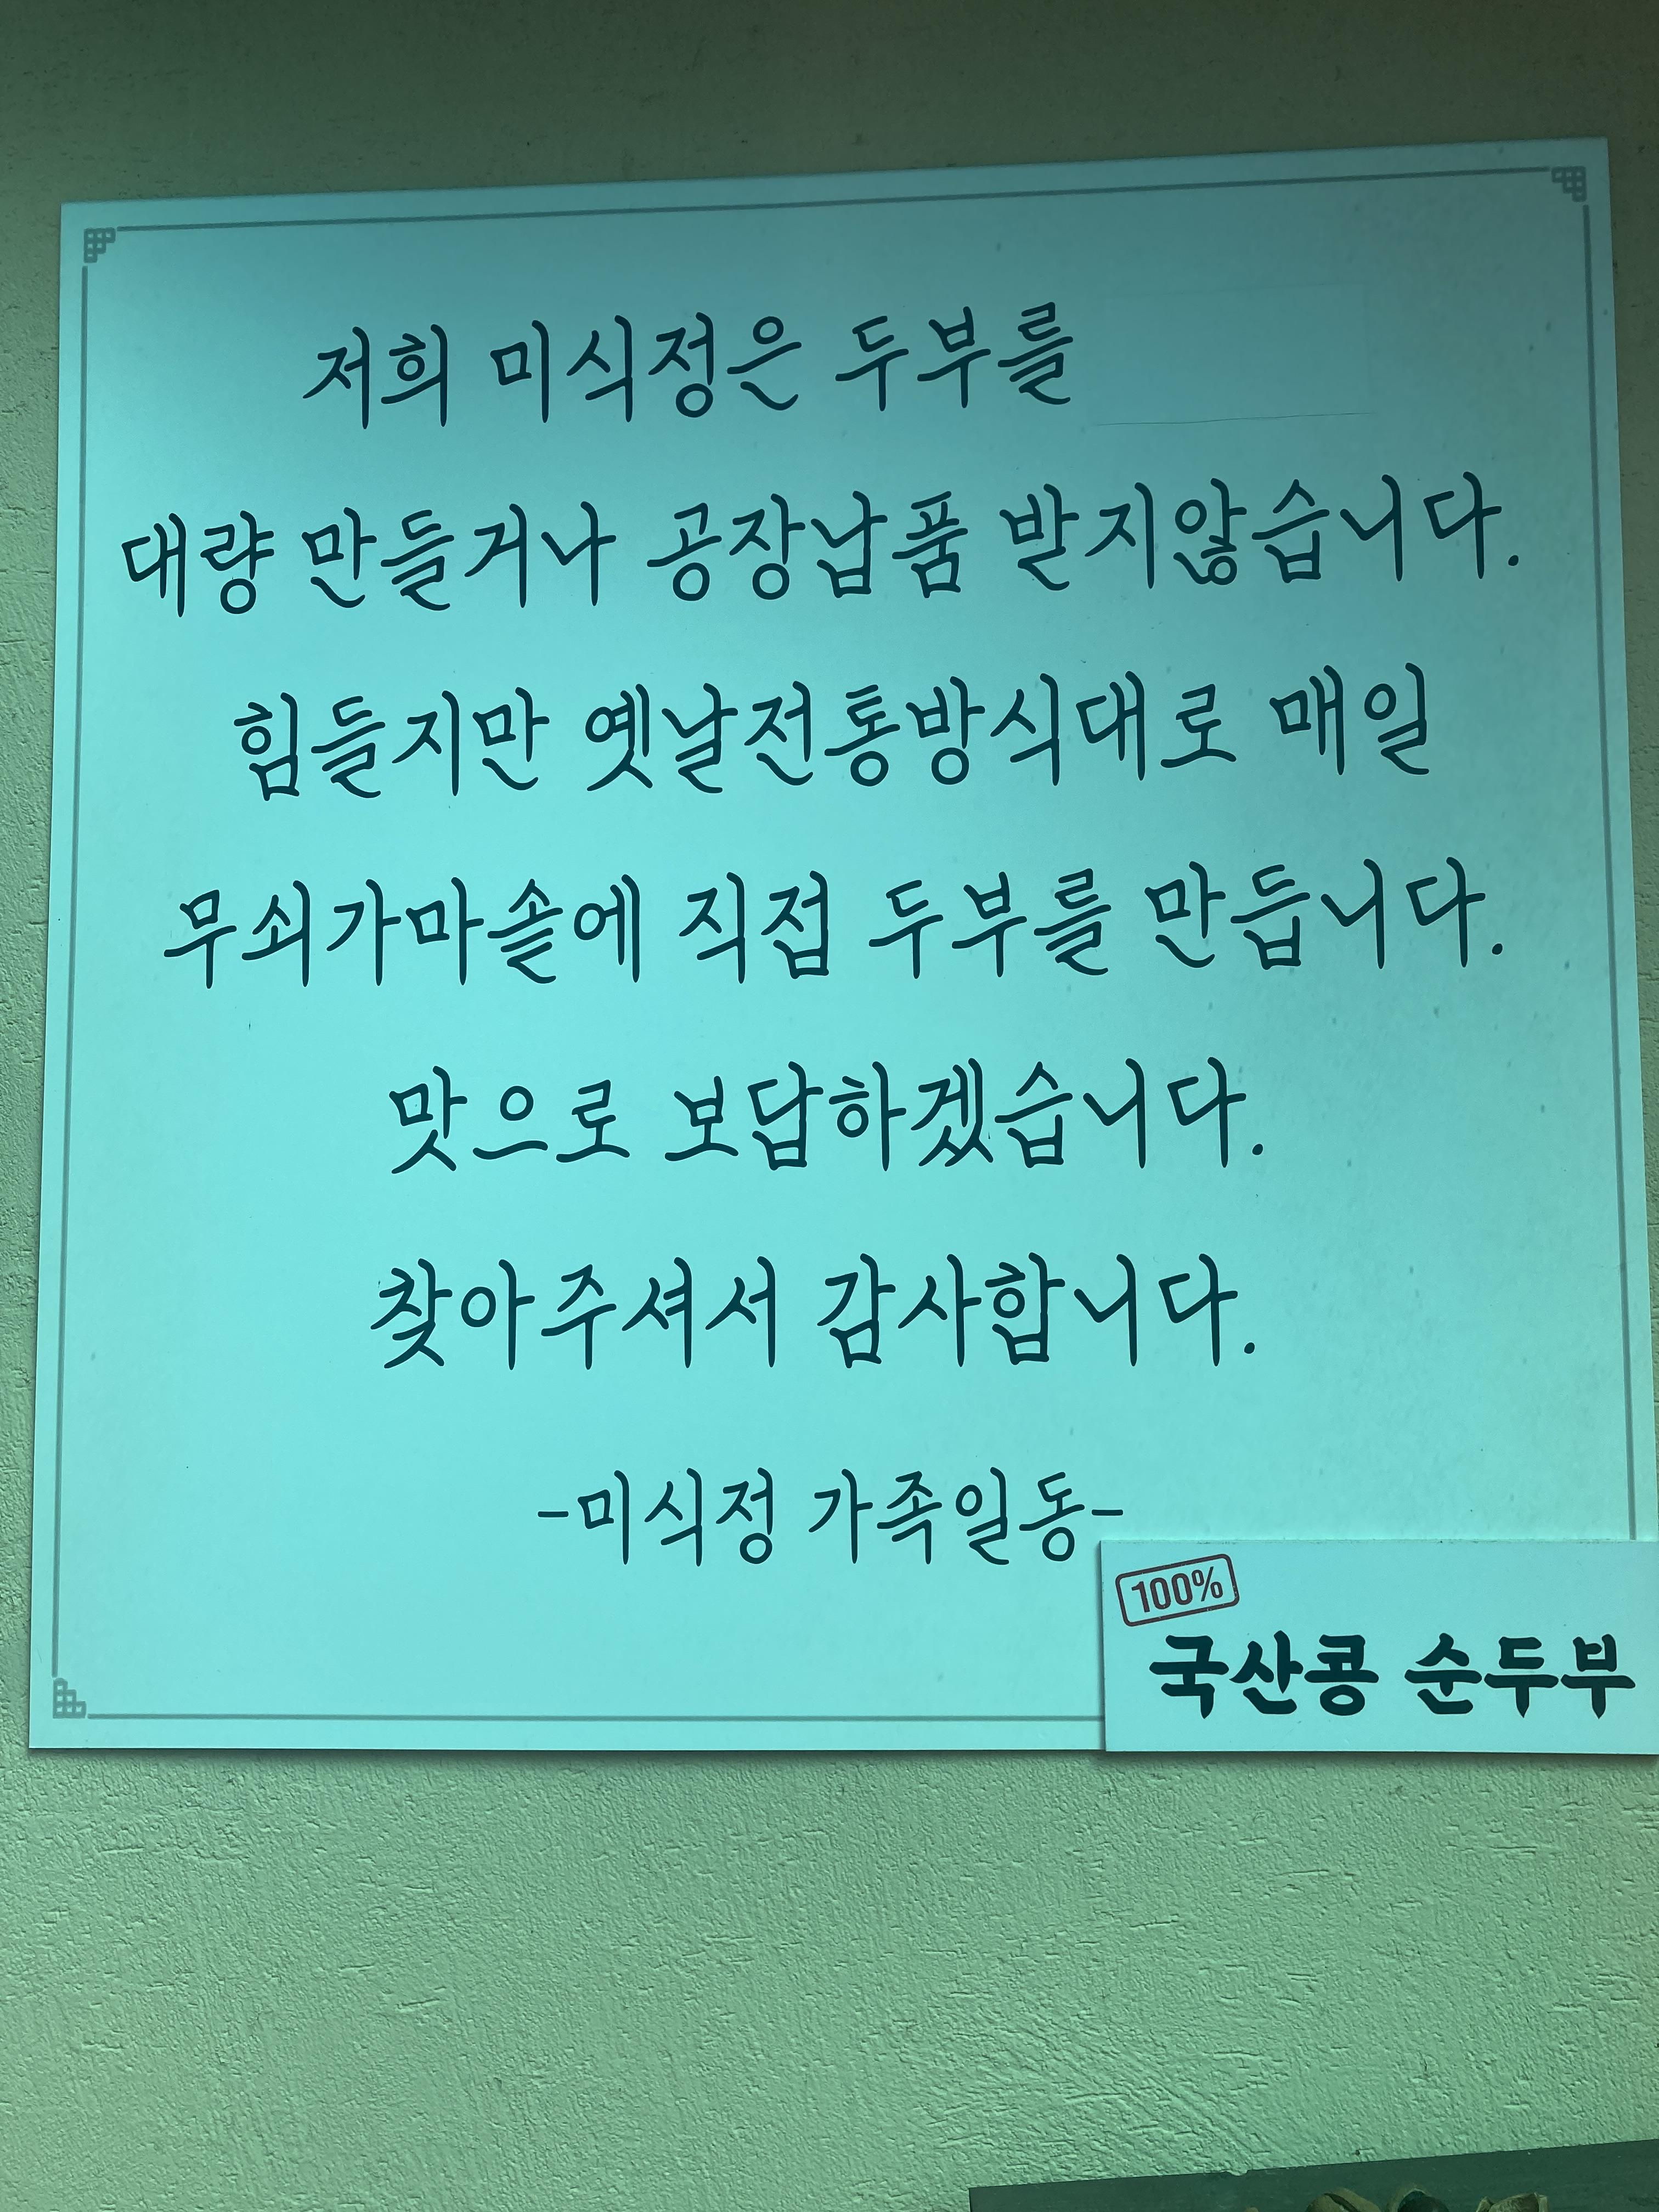 저희 미식정은 두부를
대량 만들거나 공장납품 받지않습니다.
힘들지만 옛날전통방식대로 매일
무쇠가마솥에 직접 두부를 만듭니다.
맛으로 보답하겠습니다.
찾아주셔서 감사합니다.
-미식정 가족일동-
100%
국산콩 순두부